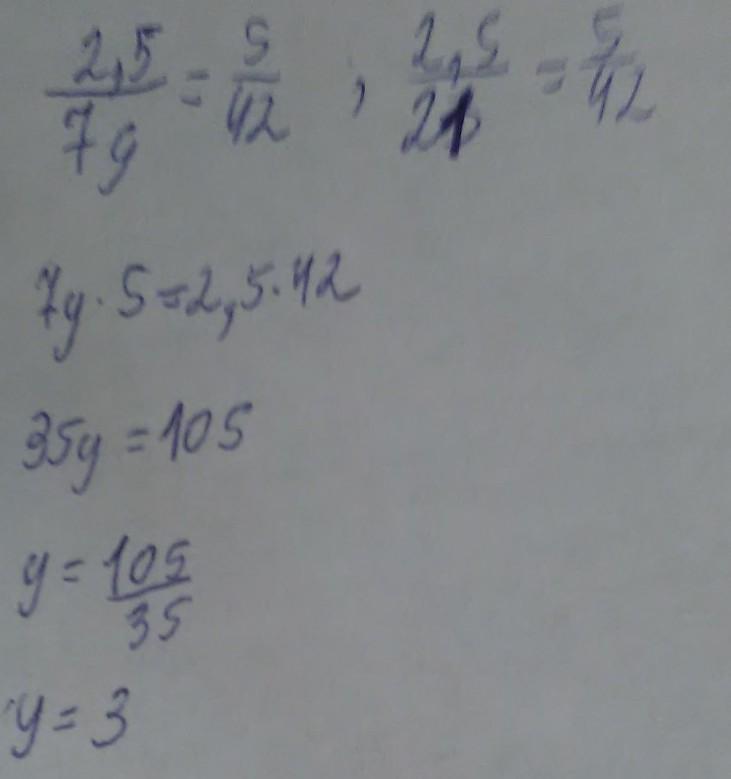 2,5/7y = 5/42 ; 2,5/21 = 5/42
7y · 5 = 2,5 · 42
35y = 105
y = 105/35
y = 3